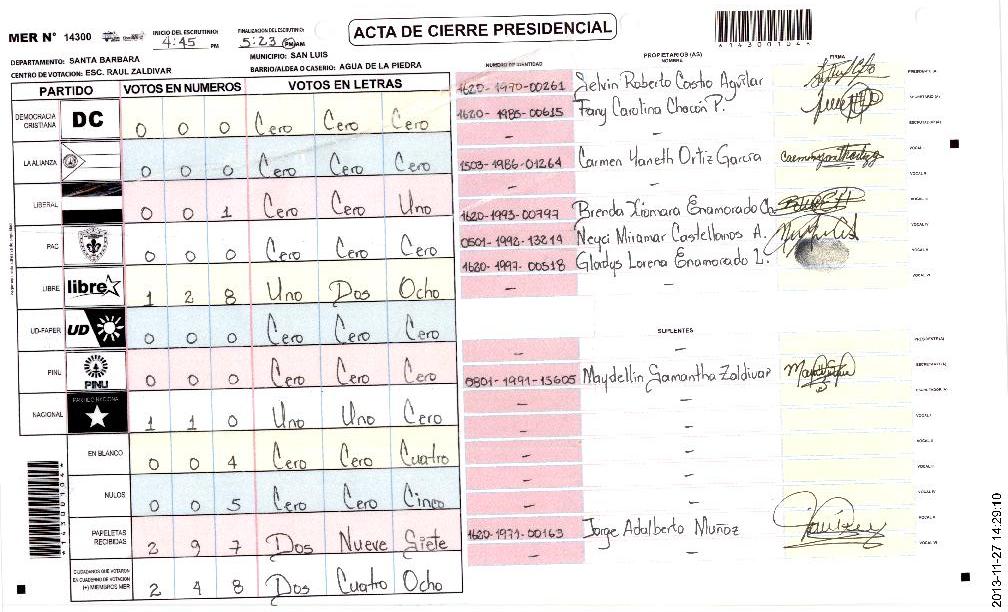 MER N° 14300
INICIO DEL ESCRUTINIO:
4:45 PM
FINALIZACION DEL ESCRUTINIO:
5:23 PM AM
ACTA DE CIERRE PRESIDENCIAL
*14300104*
DEPARTAMENTO: SANTA BARBARA
MUNICIPIO: SAN LUIS
CENTRO DE VOTACION: ESC. RAUL ZALDIVAR
BARRIO/ALDEA O CASERIO: AGUA DE LA PIEDRA
PARTIDO VOTOS EN NUMEROS VOTOS EN LETRAS
DEMOCRACIA CRISTIANA DC 0 0 0 Cero Cero Cero
LA ALIANZA 0 0 0 Cero Cero Cero
LIBERAL 0 0 1 Cero Cero Uno
PAC 0 0 0 Cero Cero Cero
LIBRE libre 1 2 8 Uno Dos Ocho
UD-FAPER UD 0 0 0 Cero Cero Cero
PINU PINU 0 0 0 Cero Cero Cero
NACIONAL PARTIDO NACIONAL 1 1 0 Uno Uno Cero
EN BLANCO 0 0 4 Cero Cero Cuatro
NULOS 0 0 5 Cero Cero Cinco
PAPELETAS RECIBIDAS 2 9 7 Dos Nueve Siete
CIUDADANOS QUE VOTARON EN CUADERNO DE VOTACION (+) MIEMBROS MER 2 4 8 Dos Cuatro Ocho
NUMERO DE IDENTIDAD PROPIETARIOS (AS) NOMBRE FIRMA
1620-1970-00261 Selvin Roberto Castro Aguilar PRESIDENTE (A)
1620-1985-00615 Fany Carolina Chacon P. SECRETARIO (A)
- - ESCRUTADOR (A)
1503-1986-01264 Carmen Yaneth Ortiz Garcia VOCAL I
- - VOCAL II
1620-1993-00797 Brenda Xiomara Enamorado VOCAL III
0501-1992-13214 Neyci Miramar Castellanos A. VOCAL IV
1620-1997-00518 Gladys Lorena Enamorado L. VOCAL V
- - VOCAL VI
SUPLENTES
- - PRESIDENTE (A)
0801-1991-13605 Maydellin Samantha Zaldivar SECRETARIO (A)
- - ESCRUTADOR (A)
- - VOCAL I
- - VOCAL II
- - VOCAL III
- - VOCAL IV
1620-1971-00163 Jorge Adalberto Muñoz VOCAL V
- - VOCAL VI
*14300104*
2013-11-27 14:29:10